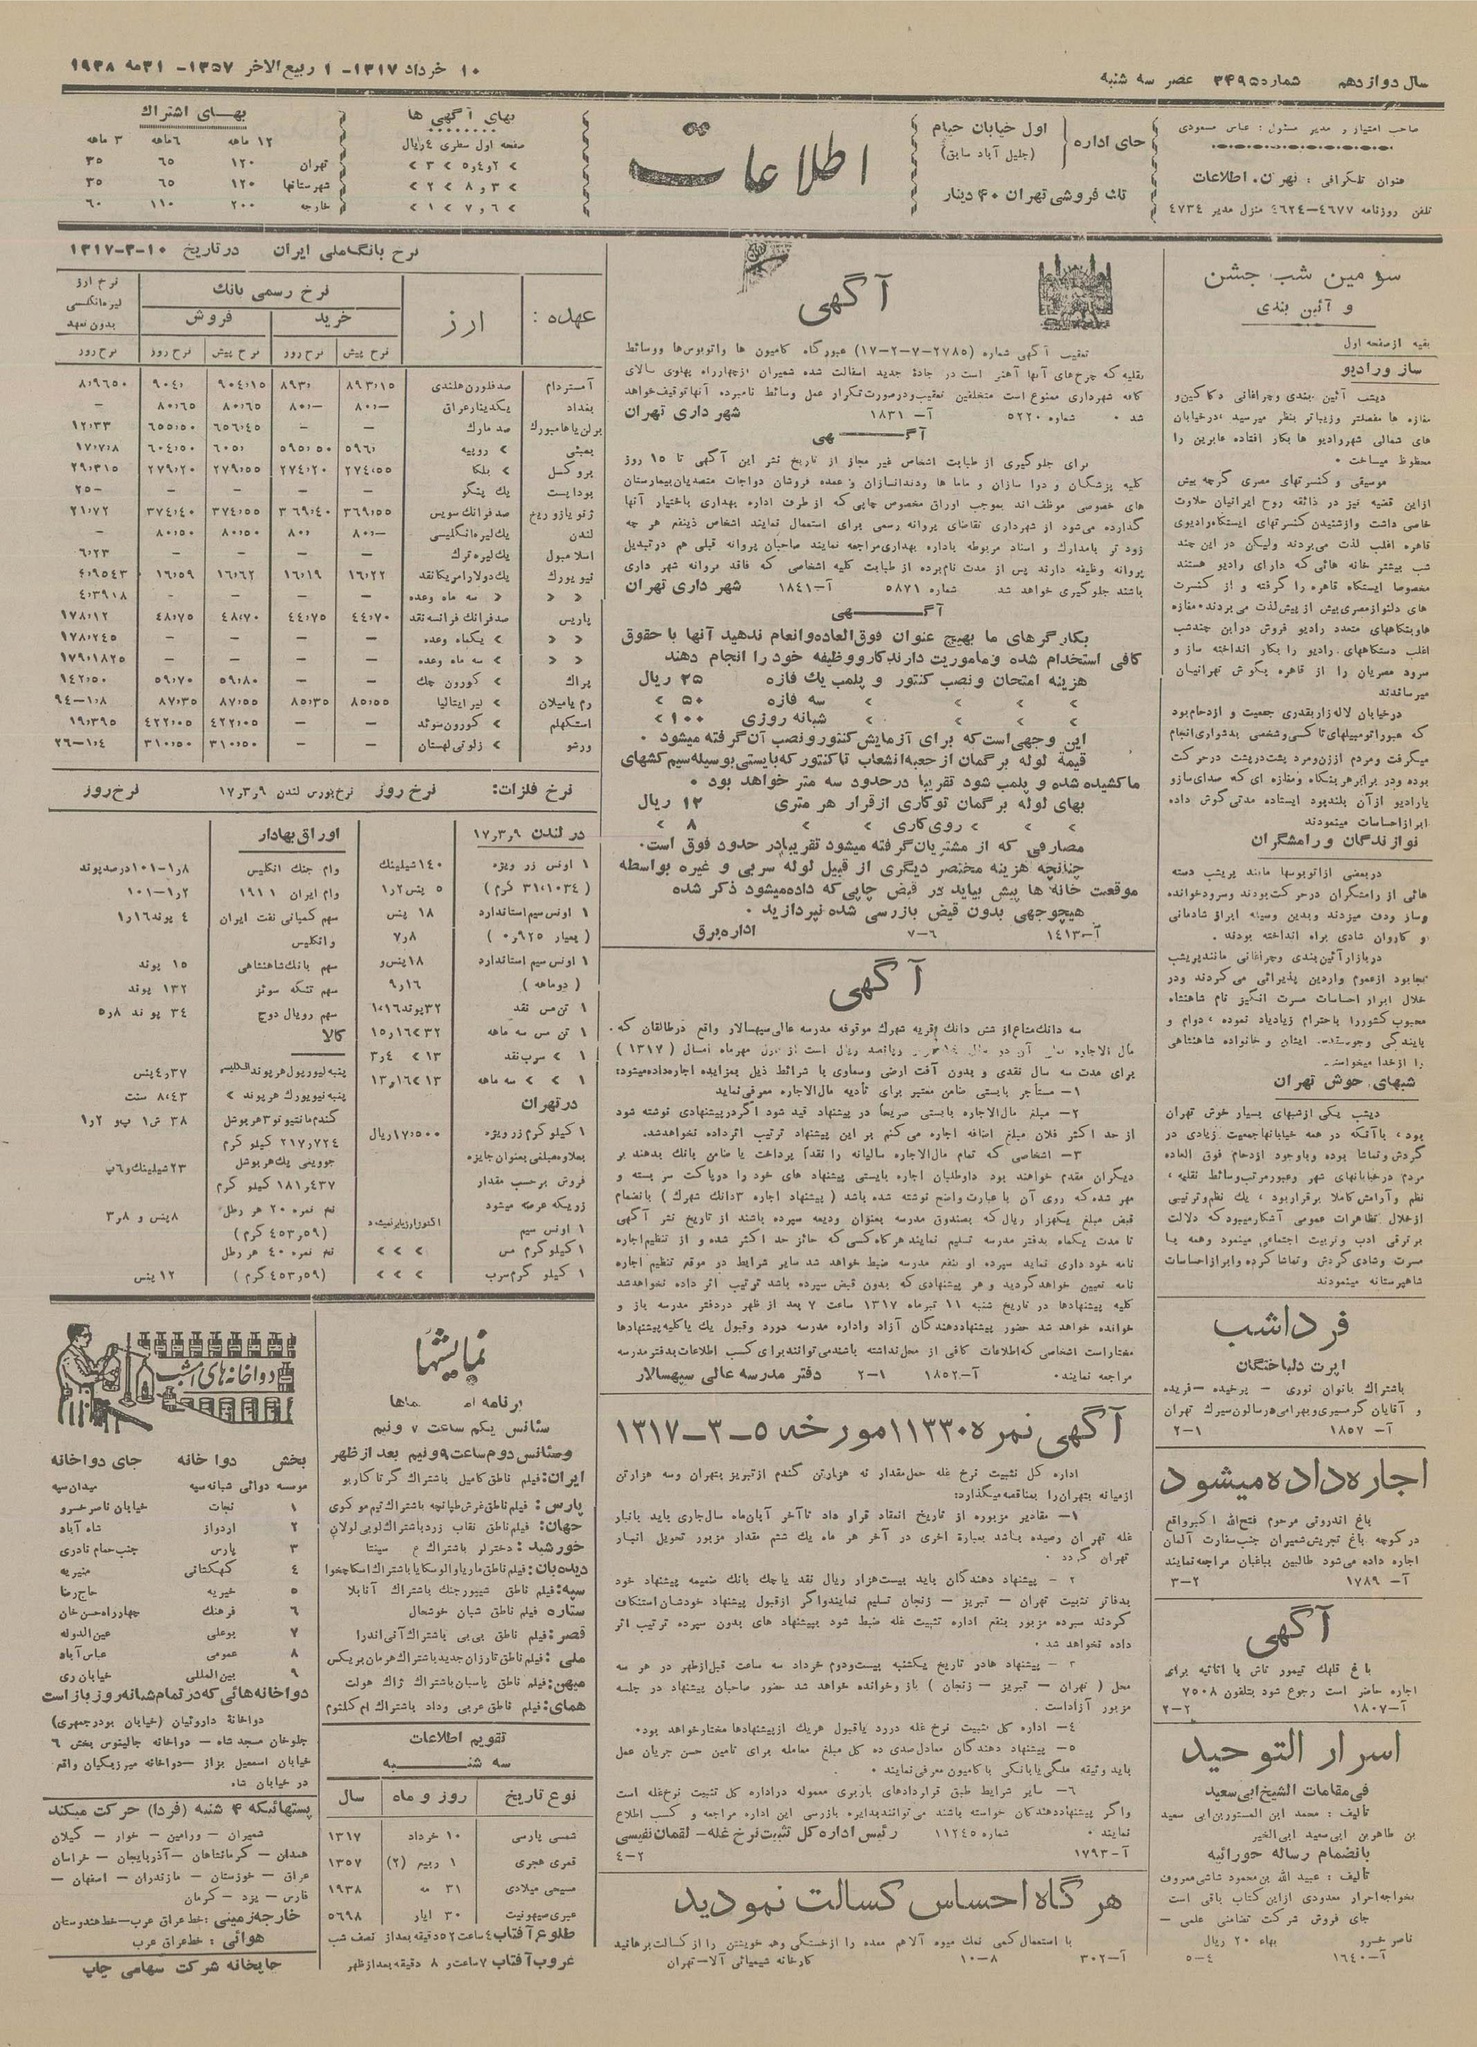 سال دوازدهم شماره ۳۴۹۵ عصر سه شنبه
۱۰ خرداد ۱۳۱۷- ۱ ربیع الاخر ۱۳۵۷- ۳۱ مه ۱۹۳۸
صاحب امتیاز و مدیر مسئول: عباس مسعودی
عنوان تلگرافی: تهران، اطلاعات
تلفن روزنامه ۴۶۷۷-۴۶۲۴ منزل مدیر ۴۷۳۴
جای اداره
اول خیابان خیام
(جلیل آباد سابق)
تك فروشی تهران ۴۰ دینار
اطلاعات
بهای آگهی ها
صفحه اول سطری ۴ ریال
> ۲ و ۴ و ۵ > ۳ >
> ۳ و ۸ > ۲ >
> ۶ و ۷ > ۱ >
بهای اشتراك
۱۲ ماهه ۶ ماهه ۳ ماهه
تهران ۱۲۰ ۶۵ ۳۵
شهرستانها ۱۲۰ ۶۵ ۳۵
خارجه ۲۰۰ ۱۱۰ ۶۰
سومین شب جشن
و آئین بندی
بقیه از صفحه اول
ساز و رادیو
دیشب آئین بندی و چراغانی دکاکین و
مغازه ها مفصلتر و زیباتر بنظر میرسید، در خیابان
های شمالی شهر رادیو ها بکار افتاده عابرین را
محظوظ میساخت.
موسیقی و کنسرتهای مصری گرچه پیش
ازاین قضیه نیز در ذائقه روح ایرانیان حلاوت
خاصی داشت و از شنیدن کنسرتهای ایستگاه رادیوی
قاهره اغلب لذت می‌بردند ولیکن در این چند
شب بیشتر خانه هائی که دارای رادیو هستند
مخصوصا ایستگاه قاهره را گرفته و از کنسرت
های دلنواز مصری بیش از پیش لذت می‌بردند، مغازه
ها و بنگاههای متعدد رادیو فروش در این چند شب
اغلب دستگاههای رادیو را بکار انداخته ساز و
سرود مصریان را از قاهره بگوش تهرانیان
میرساندند
در خیابان لاله زار بقدری جمعیت و ازدحام بود
که عبور اتومبیلهای تاکسی و شخصی بدشواری انجام
میگرفت و مردم از زن و مرد پشت در پشت در حرکت
بوده و در برابر هر بنگاه و مغازه ای که صدای ساز و
یا رادیو از آن بلند بود ایستاده مدتی گوش داده
ابراز احساسات مینمودند
نوازندگان و رامشگران
در بعضی از اتوبوسها مانند پریشب دسته
هائی از رامشگران در حرکت بودند و سرود خوانده
و ساز و دف میزدند و بدین وسیله ابراز شادمانی
و کاروان شادی براه انداخته بودند.
در بازار آئین بندی و چراغانی مانند پریشب
بجا بود از عموم واردین پذیرائی می کردند و در
خلال ابراز احساسات مسرت انگیز نام شاهنشاه
محبوب کشور را باحترام زیاد یاد نموده، دوام و
پایندگی وجود ایشان و خانواده شاهنشاهی
را از خدا میخواستند
شبهای خوش تهران
دیشب یکی از شبهای بسیار خوش تهران
بود، با آنکه در همه خیابانها جمعیت زیادی در
گردش و تماشا بوده و باوجود ازدحام فوق العاده
مردم در خیابانهای شهر و عبور مرتب وسائط نقلیه،
نظم و آرامش کاملا برقرار بود، یك نظم و ترتیبی
از خلال تظاهرات عمومی آشکار میبود که دلالت
بر ترقی ادب و تربیت اجتماعی مینمود و همه با
مسرت و شادی گردش و تماشا کرده و ابراز احساسات
شاهپرستانه مینمودند
فرداشب
اپرت دلباختگان
باشتراك بانوان نوری - پرخیده - فریده
و آقایان گرمسیری و بهرامی در سالون سیرك تهران
آ- ۱۸۵۷ ۱-۲
اجاره داده میشود
باغ اندرونی مرحوم فتح الله اکبر واقع
در کوچه باغ تجریش شمیران جنب سفارت آلمان
اجاره داده می‌شود طالبین بباغبان مراجعه نمایند
آ- ۱۷۸۹ ۲-۳
آگهی
باغ قلهك تیمور تاش با اثاثیه برای
اجاره حاضر است رجوع شود بتلفون ۷۵۰۸
آ-۱۸۰۷ ۲-۲
اسرار التوحید
فی مقامات الشیخ ابی سعید
تألیف: محمد ابن المنور بن ابی سعید
بن طاهر بن ابی سعید ابی الخیر
بانضمام رساله حورائیه
تألیف: عبید الله بن محمود شاشی معروف
بخواجه احرار معدودی از این کتاب باقی است
جای فروش شرکت تضامنی علمی -
ناصر خسرو بهاء ۲۰ ریال
آ-۱۶۴۰ ۴-۵
آگهی
تعقیب آگهی شماره (۲۷۸۵-۷-۲-۱۷) عبور گاه کامیون ها و اتوبوس‌ها و وسائط
نقلیه که چرخ‌های آنها آهنی است در جادهٔ جدید اسفالت شده شمیران از چهارراه پهلوی سالای
کافه شهرداری ممنوع است متخلفین تعقیب و در صورت تکرار عمل وسائط نامبرده آنها توقیف خواهد
شد. شماره ۵۲۲۰ آ- ۱۸۳۱ شهرداری تهران
آگهی
برای جلوگیری از طبابت اشخاص غیر مجاز از تاریخ نشر این آگهی تا ۱۵ روز
کلیه پزشگان و دوا سازان و ماما ها و دندانسازان و عمده فروشان دواجات متصدیان بیمارستان
های خصوصی موظف اند بموجب اوراق مخصوص چاپی که از طرف اداره بهداری باختیار آنها
گذارده می‌شود از شهرداری تقاضای پروانه رسمی برای استعمال نمایند اشخاص ذینفع هر چه
زود تر بامدارك و اسناد مربوطه باداره بهداری مراجعه نمایند صاحبان پروانه قبلی هم در تبدیل
پروانه وظیفه دارند پس از مدت نام‌برده از طبابت کلیه اشخاصی که فاقد پروانه شهرداری
باشند جلوگیری خواهد شد شماره ۵۸۷۱ آ-۱۸۴۱ شهرداری تهران
آگهی
بکارگرهای ما بهیچ عنوان فوق العاده و انعام ندهید آنها با حقوق
کافی استخدام شده و ماموریت دارند کار و وظیفه خود را انجام دهند
هزینه امتحان و نصب کنتور و پلمب یك فازه ۲۵ ریال
> > > > سه فازه ۵۰ >
> > > > شبانه روزی ۱۰۰ >
این وجهی است که برای آزمایش کنتور و نصب آن گرفته میشود.
قیمة لوله برگمان از جعبه انشعاب تا کنتور که بایستی بوسیله سیم کشهای
ما کشیده شده و پلمب شود تقریبا در حدود سه متر خواهد بود.
بهای لوله برگمان توکاری از قرار هر متری ۱۲ ریال
> > > روی کاری > > ۸ >
مصارفی که از مشتریان گرفته میشود تقریبا در حدود فوق است.
چنانچه هزینه مختصر دیگری از قبیل لوله سربی و غیره بواسطه
موقعیت خانه ها پیش بیاید در قبض چاپی که داده میشود ذکر شده
هیچوجهی بدون قبض بازرسی شده نپردازید.
آ-۱۴۱۳ ۶-۷ اداره برق
آگهی
سه دانك مشاع از شش دانك قریه شهرك موقوفه مدرسه عالی سپهسالار واقع در طالقان که
مال الاجاره آن در سال پانصد ریال است از اول مهرماه امسال (۱۳۱۷)
برای مدت سه سال نقدی و بدون آفت ارضی و سماوی با شرائط ذیل بمزایده اجاره داده میشود:
۱- مستأجر بایستی ضامن معتبر برای تأدیه مال الاجاره معرفی نماید
۲- مبلغ مال الاجاره بایستی صریحا در پیشنهاد قید شود اگر در پیشنهادی نوشته شود
از حد اکثر فلان مبلغ اضافه اجاره می کنم بر این پیشنهاد ترتیب اثر داده نخواهد شد.
۳- اشخاصی که تمام مال الاجاره سالیانه را نقداً پرداخت یا ضامن بانك بدهند بر
دیگران مقدم خواهند بود داوطلبان اجاره بایستی پیشنهاد های خود را در پاکت سر بسته و
مهر شده که روی آن با عبارت واضح نوشته شده باشد (پیشنهاد اجاره ۳ دانك شهرك) بانضمام
قبض مبلغ یکهزار ریال که بصندوق مدرسه بعنوان ودیعه سپرده باشند از تاریخ نشر آگهی
تا مدت یکماه بدفتر مدرسه تسلیم نمایند هر گاه کسی که حائز حد اکثر شده و از تنظیم اجاره
نامه خود داری نماید سپرده او بنفع مدرسه ضبط خواهد شد سایر شرایط در موقع تنظیم اجاره
نامه تعیین خواهد گردید و هر پیشنهادی که بدون قبض سپرده باشد ترتیب اثر داده نخواهد شد
کلیه پیشنهادها در تاریخ شنبه ۱۱ تیر ماه ۱۳۱۷ ساعت ۷ بعد از ظهر در دفتر مدرسه باز و
خوانده خواهد شد حضور پیشنهاد دهندگان آزاد و اداره مدرسه در رد و قبول یك یا کلیه پیشنهادها
مختار است اشخاصی که اطلاعات کافی از محل نداشته باشند می‌توانند برای کسب اطلاعات بدفتر مدرسه
مراجعه نمایند. آ-۱۸۵۲ ۱-۲ دفتر مدرسه عالی سپهسالار
آگهی نمره ۱۱۳۳۰ مورخه ۵-۳-۱۳۱۷
اداره کل تثبیت نرخ غله حمل مقدار نه هزار تن گندم از تبریز بتهران و سه هزار تن
از میانه بتهران را بمناقصه میگذارد:
۱- مقادیر مزبوره از تاریخ انعقاد قرار داد تا آخر آبان ماه سال جاری باید بانبار
غله تهران رسیده باشد بعبارة اخری در آخر هر ماه یك ششم مقدار مزبور تحویل انبار
تهران گردد.
۲- پیشنهاد دهندگان باید بیست هزار ریال نقد یا چك بانك ضمیمه پیشنهاد خود
بدفاتر تثبیت تهران - تبریز - زنجان تسلیم نمایند و اگر از قبول پیشنهاد خودشان استنکاف
کردند سپرده مزبور بنفع اداره تثبیت غله ضبط شود بپیشنهاد های بدون سپرده ترتیب اثر
داده نخواهد شد.
۳- پیشنهاد ها در تاریخ یکشنبه بیست و دوم خرداد سه ساعت قبل از ظهر در هر سه
محل (تهران - تبریز - زنجان) باز و خوانده خواهد شد حضور صاحبان پیشنهاد در جلسه
مزبور آزاد است.
۴- اداره کل تثبیت نرخ غله در رد یا قبول هر یك از پیشنهادها مختار خواهد بود.
۵- پیشنهاد دهندگان معادل صدی ده کل مبلغ معامله برای تامین حسن جریان عمل
باید وثیقه ملکی یا بانکی یا کامیون معرفی نمایند.
۶- سایر شرایط طبق قراردادهای باربری معموله در اداره کل تثبیت نرخ غله است
و اگر پیشنهاد دهندگان خواسته باشند می‌توانند بدایره بازرسی این اداره مراجعه و کسب اطلاع
نمایند. شماره ۱۱۲۴۵ رئیس اداره کل تثبیت نرخ غله - لقمان نفیسی
آ-۱۷۹۳ ۲-۴
هر گاه احساس کسالت نمودید
با استعمال کمی نمك میوه آلا هم معده را از خستگی و هم خویشتن را از کسالت برهانید
آ-۳۰۲ ۸-۱۰ کارخانه شیمیائی آلا-تهران
نرخ بانك ملی ایران در تاریخ ۱۰-۳-۱۳۱۷
عهده: ارز نرخ رسمی بانك نرخ ارز لیره انگلیسی بدون تعهد
خرید فروش
نرخ پیش نرخ روز نرخ پیش نرخ روز نرخ روز
آمستردام صد فلورن هلندی ۸۹۳,۱۵ ۸۹۳, ۹۰۴,۱۵ ۹۰۴, ۸,۹۶۵۰
بغداد یکدینار عراق ۸۰,- ۸۰,- ۸۰,۶۵ ۸۰,۶۵ -
برلن یا هامبورك صد مارك - - ۶۵۶,۴۵ ۶۵۵,۵۰ ۱۲,۳۳
بمبئی > روپیه ۵۹۶, ۵۹۵,۵۰ ۶۰۵, ۶۰۴,۵۰ ۱۷,۷,۸
بروکسل > بلگا ۲۷۴,۵۵ ۲۷۴,۲۰ ۲۷۹,۵۵ ۲۷۹,۲۰ ۲۹,۳۱۵
بوداپست یك پنگو - - - - ۲۵,-
ژنو یا زوریخ صد فرانك سویس ۳۶۹,۵۵ ۳۶۹,۴۰ ۳۷۴,۵۵ ۳۷۴,۴۰ ۲۱,۷۲
لندن یك لیره انگلیسی ۸۰,- ۸۰, ۸۰,۵۰ ۸۰,۵۰ -
اسلامبول یك لیره ترك - - - - ۶,۲۳
نیویورك یك دولار امریکا نقد ۱۶,۲۲ ۱۶,۱۹ ۱۶,۶۲ ۱۶,۵۹ ۴,۹۵۴۳
> > > سه ماه وعده - - - - ۴,۳۹۱۸
پاریس صد فرانك فرانسه نقد ۴۴,۷۰ ۴۴,۷۵ ۴۸,۷۰ ۴۸,۷۵ ۱۷۸,۱۲
> > > یکماه وعده - - - - ۱۷۸,۲۴۵
> > > سه ماه وعده - - - - ۱۷۹,۱۸۲۵
پراك > کورون چك - - ۵۹,۸۰ ۵۹,۷۰ ۱۴۲,۵۰
رم یا میلان > لیر ایتالیا ۸۵,۵۵ ۸۵,۳۵ ۸۷,۵۵ ۸۷,۳۵ ۹۴-۱,۸
استکهلم > کورون سوئد - - ۴۲۲,۰۵ ۴۲۲,۰۵ ۱۹,۳۹۵
ورشو > زلوتی لهستان - - ۳۱۰,۵۰ ۳۱۰,۵۰ ۲۶-۱,۴
نرخ فلزات: نرخ روز
نرخ بورس لندن ۱۷,۳,۹ نرخ روز
در لندن ۱۷,۳,۹
۱ اونس زر ویژه ۱۴۰ شیلینك
(۳۱,۱۰۳۴ گرم) ۵ پنس ۱,۲
۱ اونس سیم استاندارد ۱۸ پنس
(بعیار ۰,۹۲۵) ۷,۸
۱ اونس سیم استاندارد ۱۸ پنس و
(دو ماهه) ۹,۱۶
۱ تن مس نقد ۳۲ پوند ۱,۱۶
۱ تن مس سه ماهه ۳۲ > ۱۵,۱۶
۱ > سرب نقد ۱۳ > ۳,۴
۱ > > سه ماهه ۱۳ > ۱۳,۱۶
در تهران
۱ کیلو گرم زر ویژه ۱۷,۵۰۰ ریال
بعلاوه مبلغی بعنوان جایزه
فروش بر حسب مقدار
زریکه عرضه میشود
۱ اونس سیم
۱ کیلو گرم مس > > >
۱ کیلو گرم سرب > > >
اوراق بهادار
وام جنك انگلیس ۱۰۱-۱,۸ درصد پوند
وام ایران ۱۹۱۱ ۱۰۱-۱,۲
سهم کمپانی نفت ایران و انگلیس ۴ پوند ۱,۱۶
سهم بانك شاهنشاهی ۱۵ پوند
سهم تنگه سوئز ۱۳۲ پوند
سهم رویال دوچ ۳۴ پوند ۵,۸
کالا
پنبه لیورپول هر پوند انگلیسی ۴,۳۷ پنس
پنبه نیویورك هر پوند > ۸,۴۳ سنت
گندم مانتیو تو ۳ هر بوشل ۳۸ ش ۱ پ و ۱,۲
۲۱۷,۷۲۴ کیلو گرم
جو وینی پك هر بوشل ۲۳ شیلینك و ۶ پ
۱۸۱,۴۳۷ کیلو گرم
نخ نمره ۲۰ هر رطل ۸ پنس و ۳,۸
(۴۵۳,۵۹ گرم)
نخ نمره ۴۰ هر رطل
(۴۵۳,۵۹ گرم) ۱۲ پنس
نمایشها
برنامه سینماها
سئانس یکم ساعت ۷ ونیم
وسئانس دوم ساعت ۹ ونیم بعد از ظهر
ایران: فیلم ناطق کامیل باشتراك گرتا گاربو
پارس: فیلم ناطق غرش طپانچه باشتراك تیم مو کوی
جهان: فیلم ناطق نقاب زرد باشتراك لوپی لولان
خورشید: دختر لر باشتراك ع سپنتا
دیده بان: فیلم ناطق ماریا والوسکا باشتراك
سپه: فیلم ناطق شیپور جنك باشتراك آنابلا
ستاره فیلم ناطق شبان خوشحال
قصر: فیلم ناطق بی بی باشتراك آنی اندرا
ملی: فیلم ناطق تارزان جدید باشتراك هرمان بریکس
میهن: فیلم ناطق پاسبان باشتراك ژاك هولت
همای: فیلم ناطق عربی وداد باشتراك ام کلثوم
تقویم اطلاعات
سه شنبه
نوع تاریخ روز و ماه سال
شمسی پارسی ۱۰ خرداد ۱۳۱۷
قمری هجری ۱ ربیع (۲) ۱۳۵۷
مسیحی میلادی ۳۱ مه ۱۹۳۸
عبری صیهونیت ۳۰ ایار ۵۶۹۸
طلوع آفتاب ۴ ساعت ۵۲ دقیقه بعد از نصف شب
غروب آفتاب ۷ ساعت و ۸ دقیقه بعد از ظهر
دواخانه های امشب
بخش دوا خانه جای دواخانه
موسسه دوائی شبانه سپه میدان سپه
۱ نجات خیابان ناصر خسرو
۲ اردواز شاه آباد
۳ پارس جنب حمام نادری
۴ کهکشانی منیریه
۵ خیریه حاج رضا
۶ فرهنك چهارراه حسن خان
۷ بوعلی عین الدوله
۸ عمومی عباس آباد
۹ بین المللی خیابان ری
دواخانه هائی که در تمام شبانه روز باز است
دواخانهٔ داروئیان (خیابان بوذرجمهری)
جلوخان مسجد شاه - دواخانه جالینوس بخش ۶
خیابان اسمعیل بزاز - دواخانه میرزیکیان واقع
در خیابان شاه
پستهائیکه ۴ شنبه (فردا) حرکت میکند
شمیران - ورامین - خوار - گیلان
همدان - کرمانشاهان - آذربایجان - خراسان
عراق - خوزستان - مازندران - اصفهان -
فارس - یزد - کرمان
خارجه زمینی: خط عراق عرب - خط هندوستان
هوائی: خط عراق عرب
چاپخانه شرکت سهامی چاپ